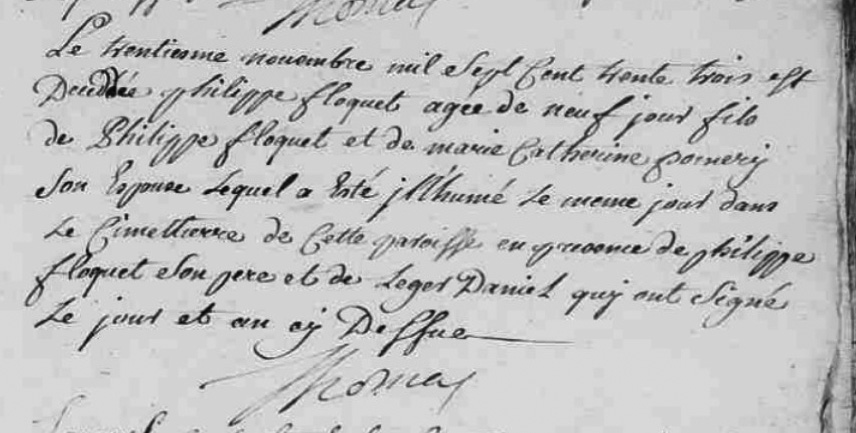 Thomas
Le trentiesme novembre mil Sept Cent trente trois est
Deceddée philippe floquet agée de neuf jour fils
de Philippe floquet et de marie Catherine pomery
Son Epouse Lequel a Esté jNhumé Le meme jour dans
Le Cimettierre de Cette paroisse en presence de philippe
floquet Son pere et de Leger Daniel quy ont Signé
Le jour et an cy Dessus
Thomas